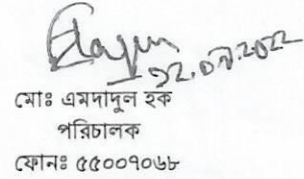 ১২.০৭.২০২২
মোঃ এমদাদুল হক
পরিচালক
ফোনঃ ৫৫০০৭০৬৮